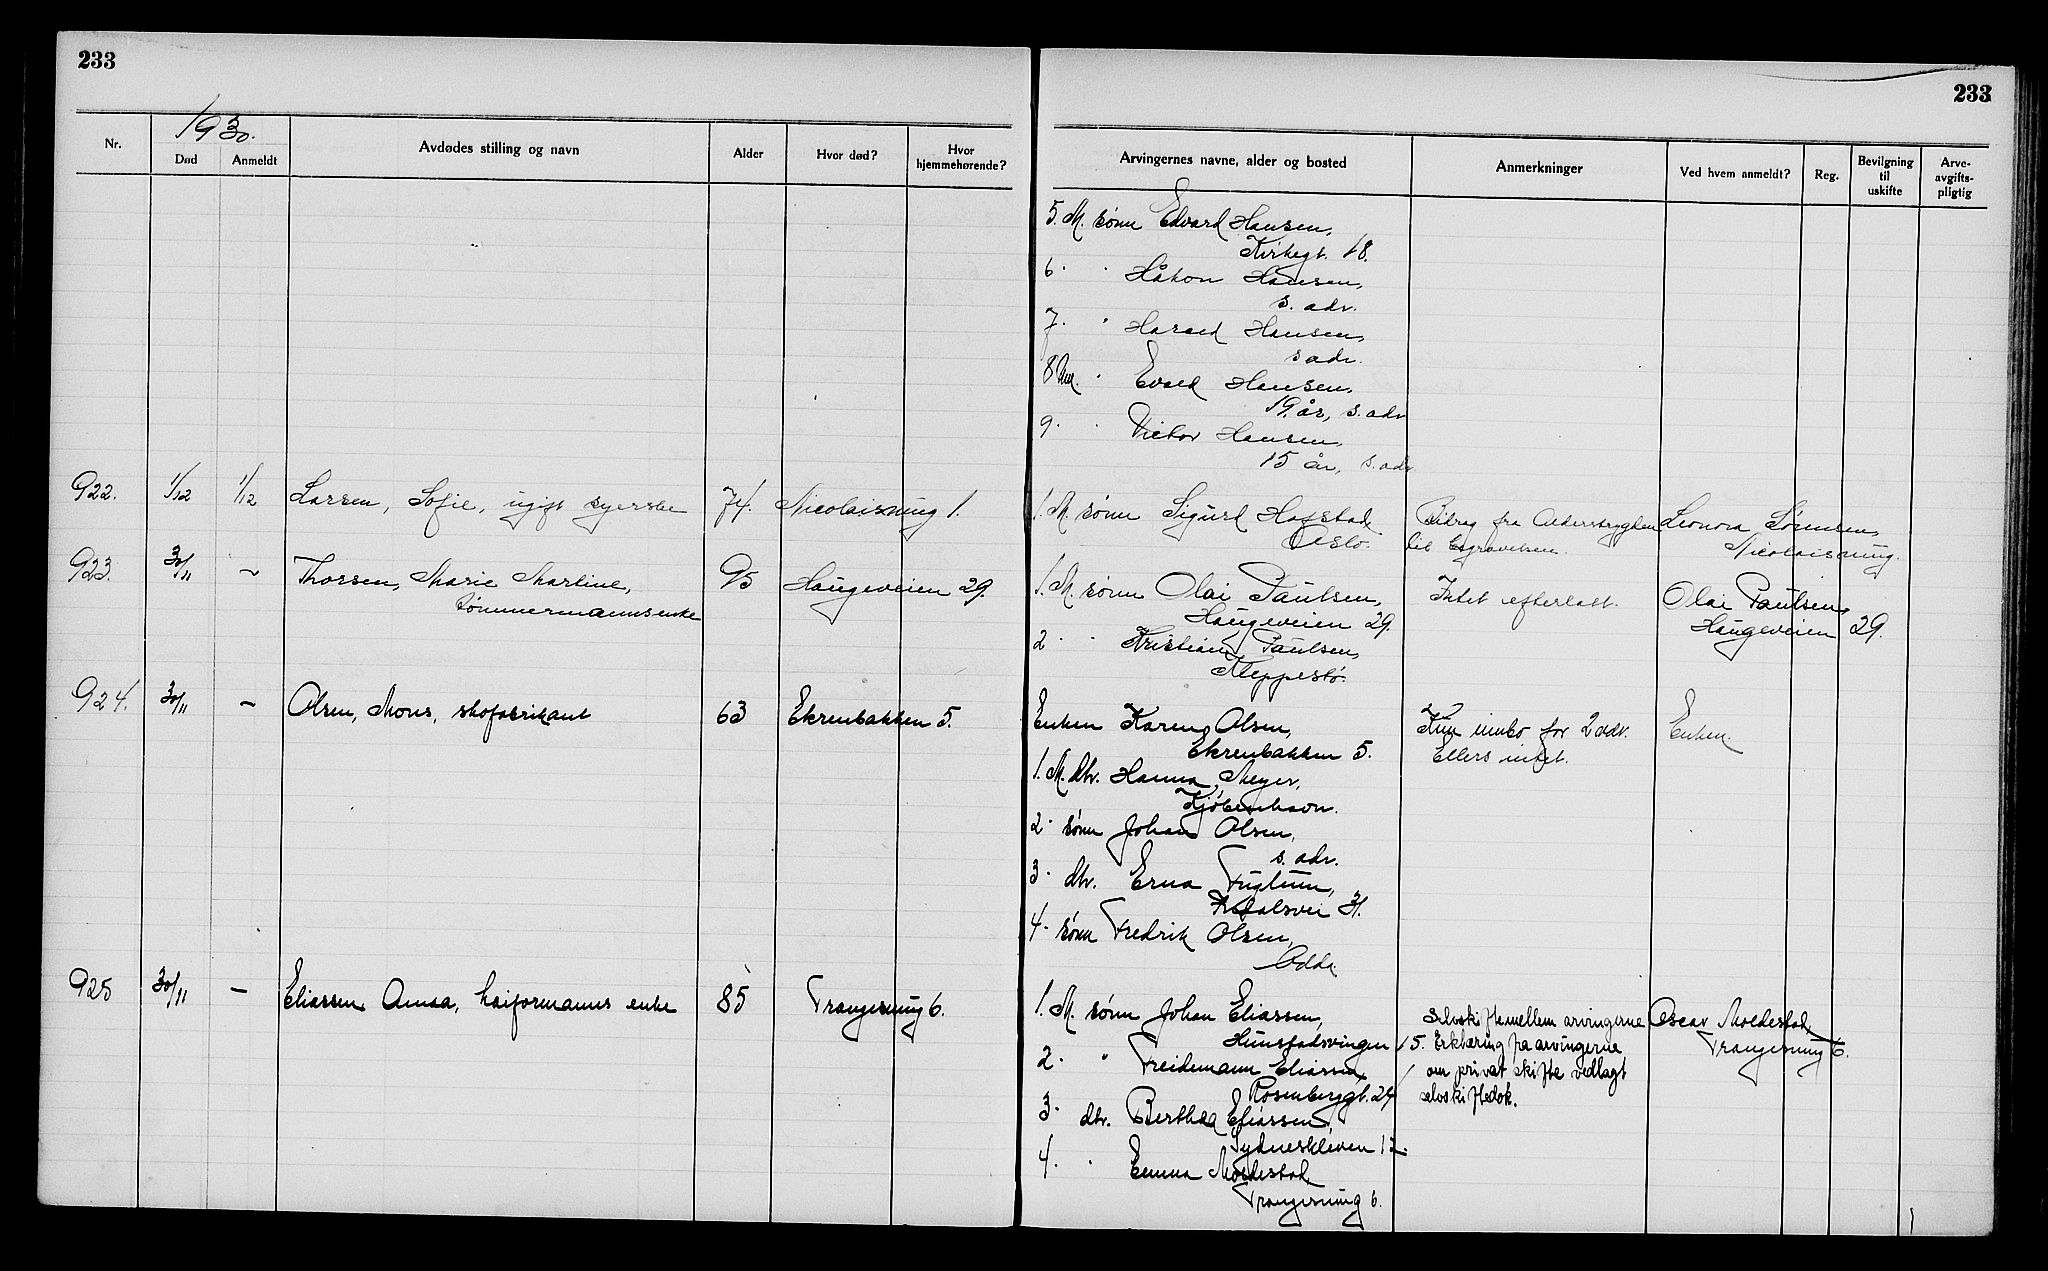 233
233
1930.
Nr.
Død
Anmeldt
Avdødes stilling og navn
Alder
Hvor død?
Hvor hjemmehørende?
Arvingernes navne, alder og bosted
Anmerkninger
Ved hvem anmeldt?
Reg.
Bevilgning til uskifte
Arve-avgifts-pligtig
5. M. sønn Edvard Hansen,
Kirkegt. 18.
6. " Håkon Hansen,
s. adr.
7. " Harald Hansen,
s adr.
8 Um. " Evald Hansen,
19 år, s. adr
9. " Victor Hansen,
15 år, s. adr
922. 1/12 1/12 Larsen, Sofie, ugift syerske 74. Nicolaismug 1.
1. M. sønn Sigurd Hofstad
Oslo.
Bidrag fra Alderstrygden
til begravelsen.
Leonora Sørensen,
Nicolaismug.
923. 30/11 ~ Thorsen, Marie Martine,
tømmermannsenke
95 Haugeveien 29.
1. M. sønn Olai Paulsen,
Haugeveien 29.
2 " Kristian Paulsen,
Kleppestø.
Intet efterlatt.
Olai Paulsen,
Haugeveien 29.
924. 30/11 ~ Olsen, Mons, skofabrikant 63 Ekrenbakken 5.
Enken Karen Olsen,
Ekrenbakken 5.
1. M. dtr. Hanna Meyer,
Kjøbenhavn.
2. sønn Johan Olsen,
s. adr.
3. dtr. Erna Fuglum,
31.
4. sønn Fredrik Olsen,
Odda.
Kun innbo for 2 adv.
Ellers intet.
Enken.
925 30/11 — Eliassen Anna, havformanns enke 85 Trangesmug 6.
1. M. sønn Johan Eliassen,
Hunstadsvingen 15.
2. " Freidemann Eliassen
Rosenberggt. 24
3. dtr. Berthea Eliassen,
Sydneskleven 12.
4. " Emma Moldestad
Trangesmug 6.
Selvskifte mellem arvingerne
Erklæring fra arvingerne
om privat skifte vedlagt
selvskiftedok.
Oscar Moldestad,
Trangesmug 6.